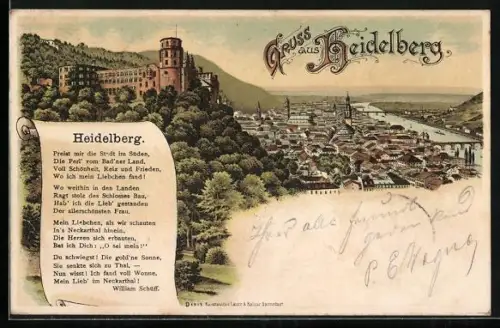 Gruss aus Heidelberg.
Heidelberg.
Preist mir die Stadt im Süden,
Die Perl' vom Bad'ner Land,
Voll Schönheit, Reiz und Frieden,
Wo ich mein Liebchen fand!
Wo weithin in den Landen
Ragt stolz des Schlosses Bau,
Hab' ich die Lieb' gestanden
Der allerschönsten Frau.
Mein Liebchen, als wir schauten
In's Neckarthal hinein,
Die Herren sich erbauten,
Bat ich Dich: „O sei mein!"
Du schwiegst! Die gold'ne Sonne,
Sie senkte sich zu Thal, —
Nun wisst! Ich fand voll Wonne,
Mein Lieb' im Neckarthal!
William Schüff.